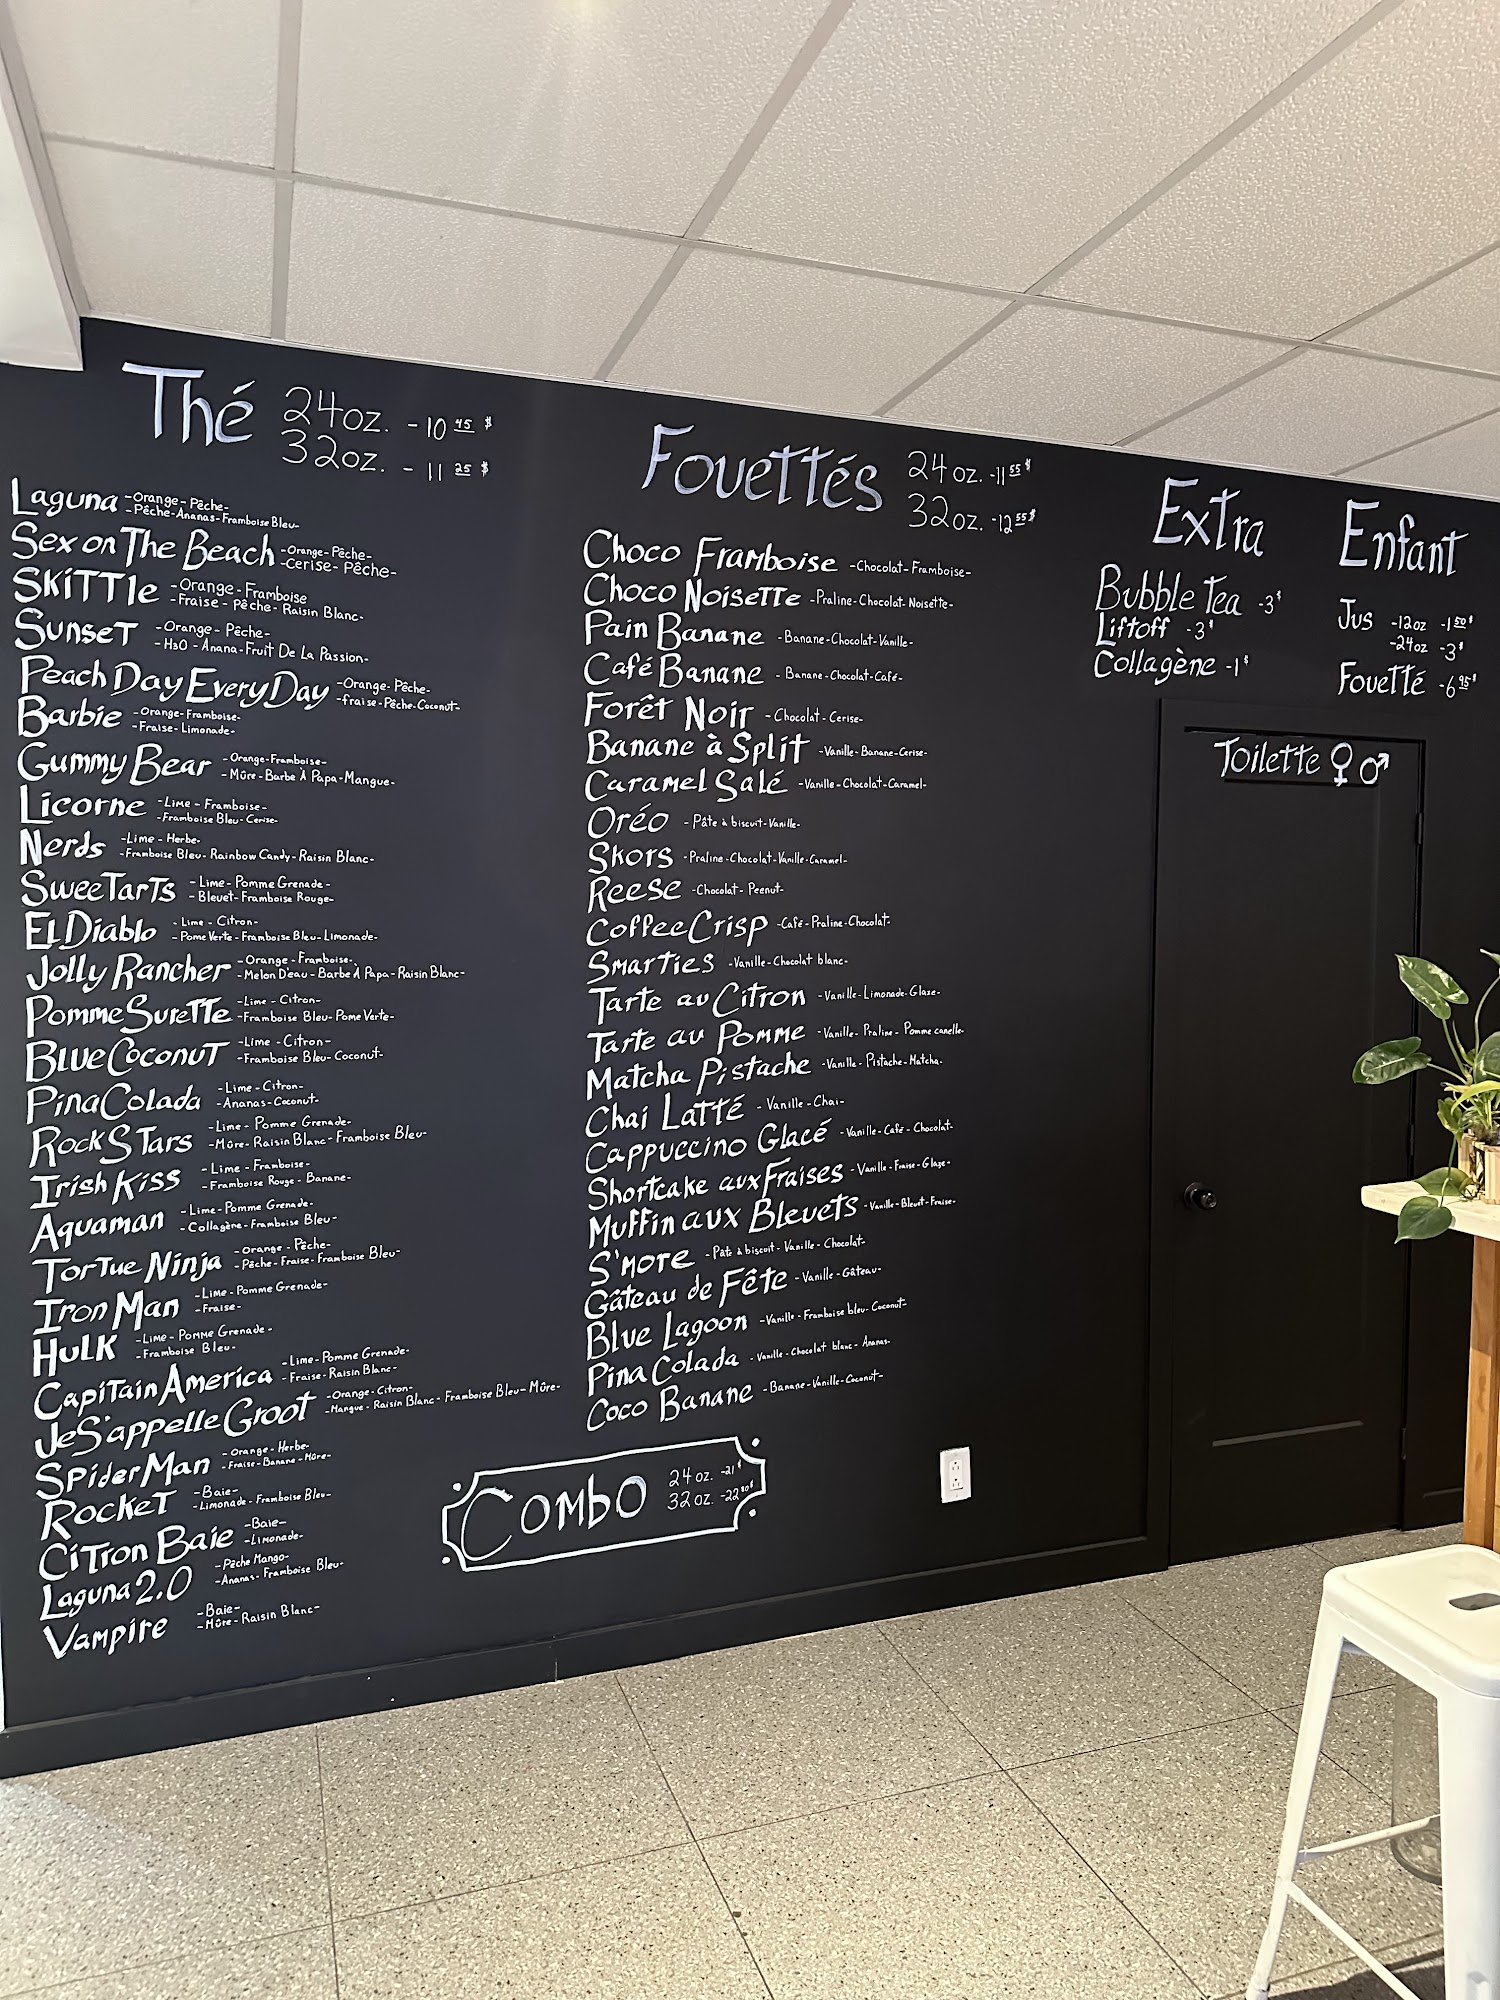 Thé
24oz. -10 45 $
32oz. -11 25 $
Laguna -Orange-Pêche-
-Pêche-Ananas-Framboise Bleu-
Sex on The Beach -Orange-Pêche-
-Cerise-Pêche-
SKiTTle -Orange-Framboise
-Fraise-Pêche-Raisin Blanc-
Sunset -Orange-Pêche-
-H2O-Anana-Fruit De La Passion-
Peach Day Every Day -Orange-Pêche-
-fraise-Pêche-Coconut-
Barbie -Orange-Framboise-
-Fraise-Limonade-
Gummy Bear -Orange-Framboise-
-Mûre-Barbe À Papa-Mangue-
Licorne -Lime-Framboise-
-Framboise Bleu-Cerise-
Nerds -Lime-Herbe-
-Framboise Bleu-Rainbow Candy-Raisin Blanc-
SweeTarTs -Lime-Pomme Grenade-
-Bleuet-Framboise Rouge-
El Diablo -Lime-Citron-
-Pome Verte-Framboise Bleu-Limonade-
Jolly Rancher -Orange-Framboise-
-Melon D'eau-Barbe À Papa-Raisin Blanc-
Pomme Surette -Lime-Citron-
-Framboise Bleu-Pome Verte-
Blue Coconut -Lime-Citron-
-Framboise Bleu-Coconut-
Pina Colada -Lime-Citron-
-Ananas-Coconut-
Rock STars -Lime-Pomme Grenade-
-Mûre-Raisin Blanc-Framboise Bleu-
Irish Kiss -Lime-Framboise-
-Framboise Rouge-Banane-
Aquaman -Lime-Pomme Grenade-
-Collagène-Framboise Bleu-
Tortue Ninja -Orange-Pêche-
-Pêche-Fraise-Framboise Bleu-
Iron Man -Lime-Pomme Grenade-
-Fraise-
Hulk -Lime-Pomme Grenade-
-Framboise Bleu-
Capitain America -Lime-Pomme Grenade-
-Fraise-Raisin Blanc-
Je S'appelle Groot -Orange-Citron-
-Mangue-Raisin Blanc-Framboise Bleu-Mûre-
Spider Man -Orange-Herbe-
-Fraise-Banane-Mûre-
Rocket -Baie-
-Limonade-Framboise Bleu-
Citron Baie -Baie-
-Limonade-
Laguna 2.0 -Pêche Mango-
-Ananas-Framboise Bleu-
Vampire -Baie-
-Mûre-Raisin Blanc-
Fouettés
24oz. -11 55 $
32oz. -12 55 $
Choco Framboise -Chocolat-Framboise-
Choco Noisette -Praline-Chocolat-Noisette-
Pain Banane -Banane-Chocolat-Vanille-
Café Banane -Banane-Chocolat-Café-
Forêt Noir -Chocolat-Cerise-
Banane à Split -Vanille-Banane-Cerise-
Caramel Salé -Vanille-Chocolat-Caramel-
Oréo -Pâte à biscuit-Vanille-
Skors -Praline-Chocolat-Vanille-Caramel-
Reese -Chocolat-Peenut-
Coffee Crisp -Café-Praline-Chocolat-
Smarties -Vanille-Chocolat blanc-
Tarte au Citron -Vanille-Limonade-Glaze-
Tarte au Pomme -Vanille-Praline-Pomme canelle-
Matcha Pistache -Vanille-Pistache-Matcha-
Chai Latté -Vanille-Chai-
Cappuccino Glacé -Vanille-Café-Chocolat-
Shortcake aux Fraises -Vanille-Fraise-Glaze-
Muffin aux Bleuets -Vanille-Bleuet-Fraise-
S'more -Pâte à biscuit-Vanille-Chocolat-
Gâteau de Fête -Vanille-Gâteau-
Blue Lagoon -Vanille-Framboise bleu-Coconut-
Pina Colada -Vanille-Chocolat blanc-Ananas-
Coco Banane -Banane-Vanille-Coconut-
Combo
24oz. -21 $
32oz. -22 80 $
Extra
Bubble Tea -3 $
Liftoff -3 $
Collagène -1 $
Enfant
Jus -12oz -1 50 $
-24oz -3 $
Fouetté -6 95 $
Toilette ♀ ♂